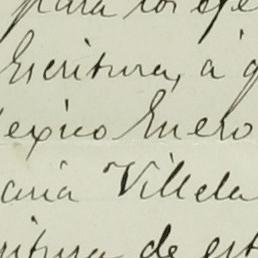 para los efe
Escritura, a q
Mexico Enero
aria Villela
ritura de est